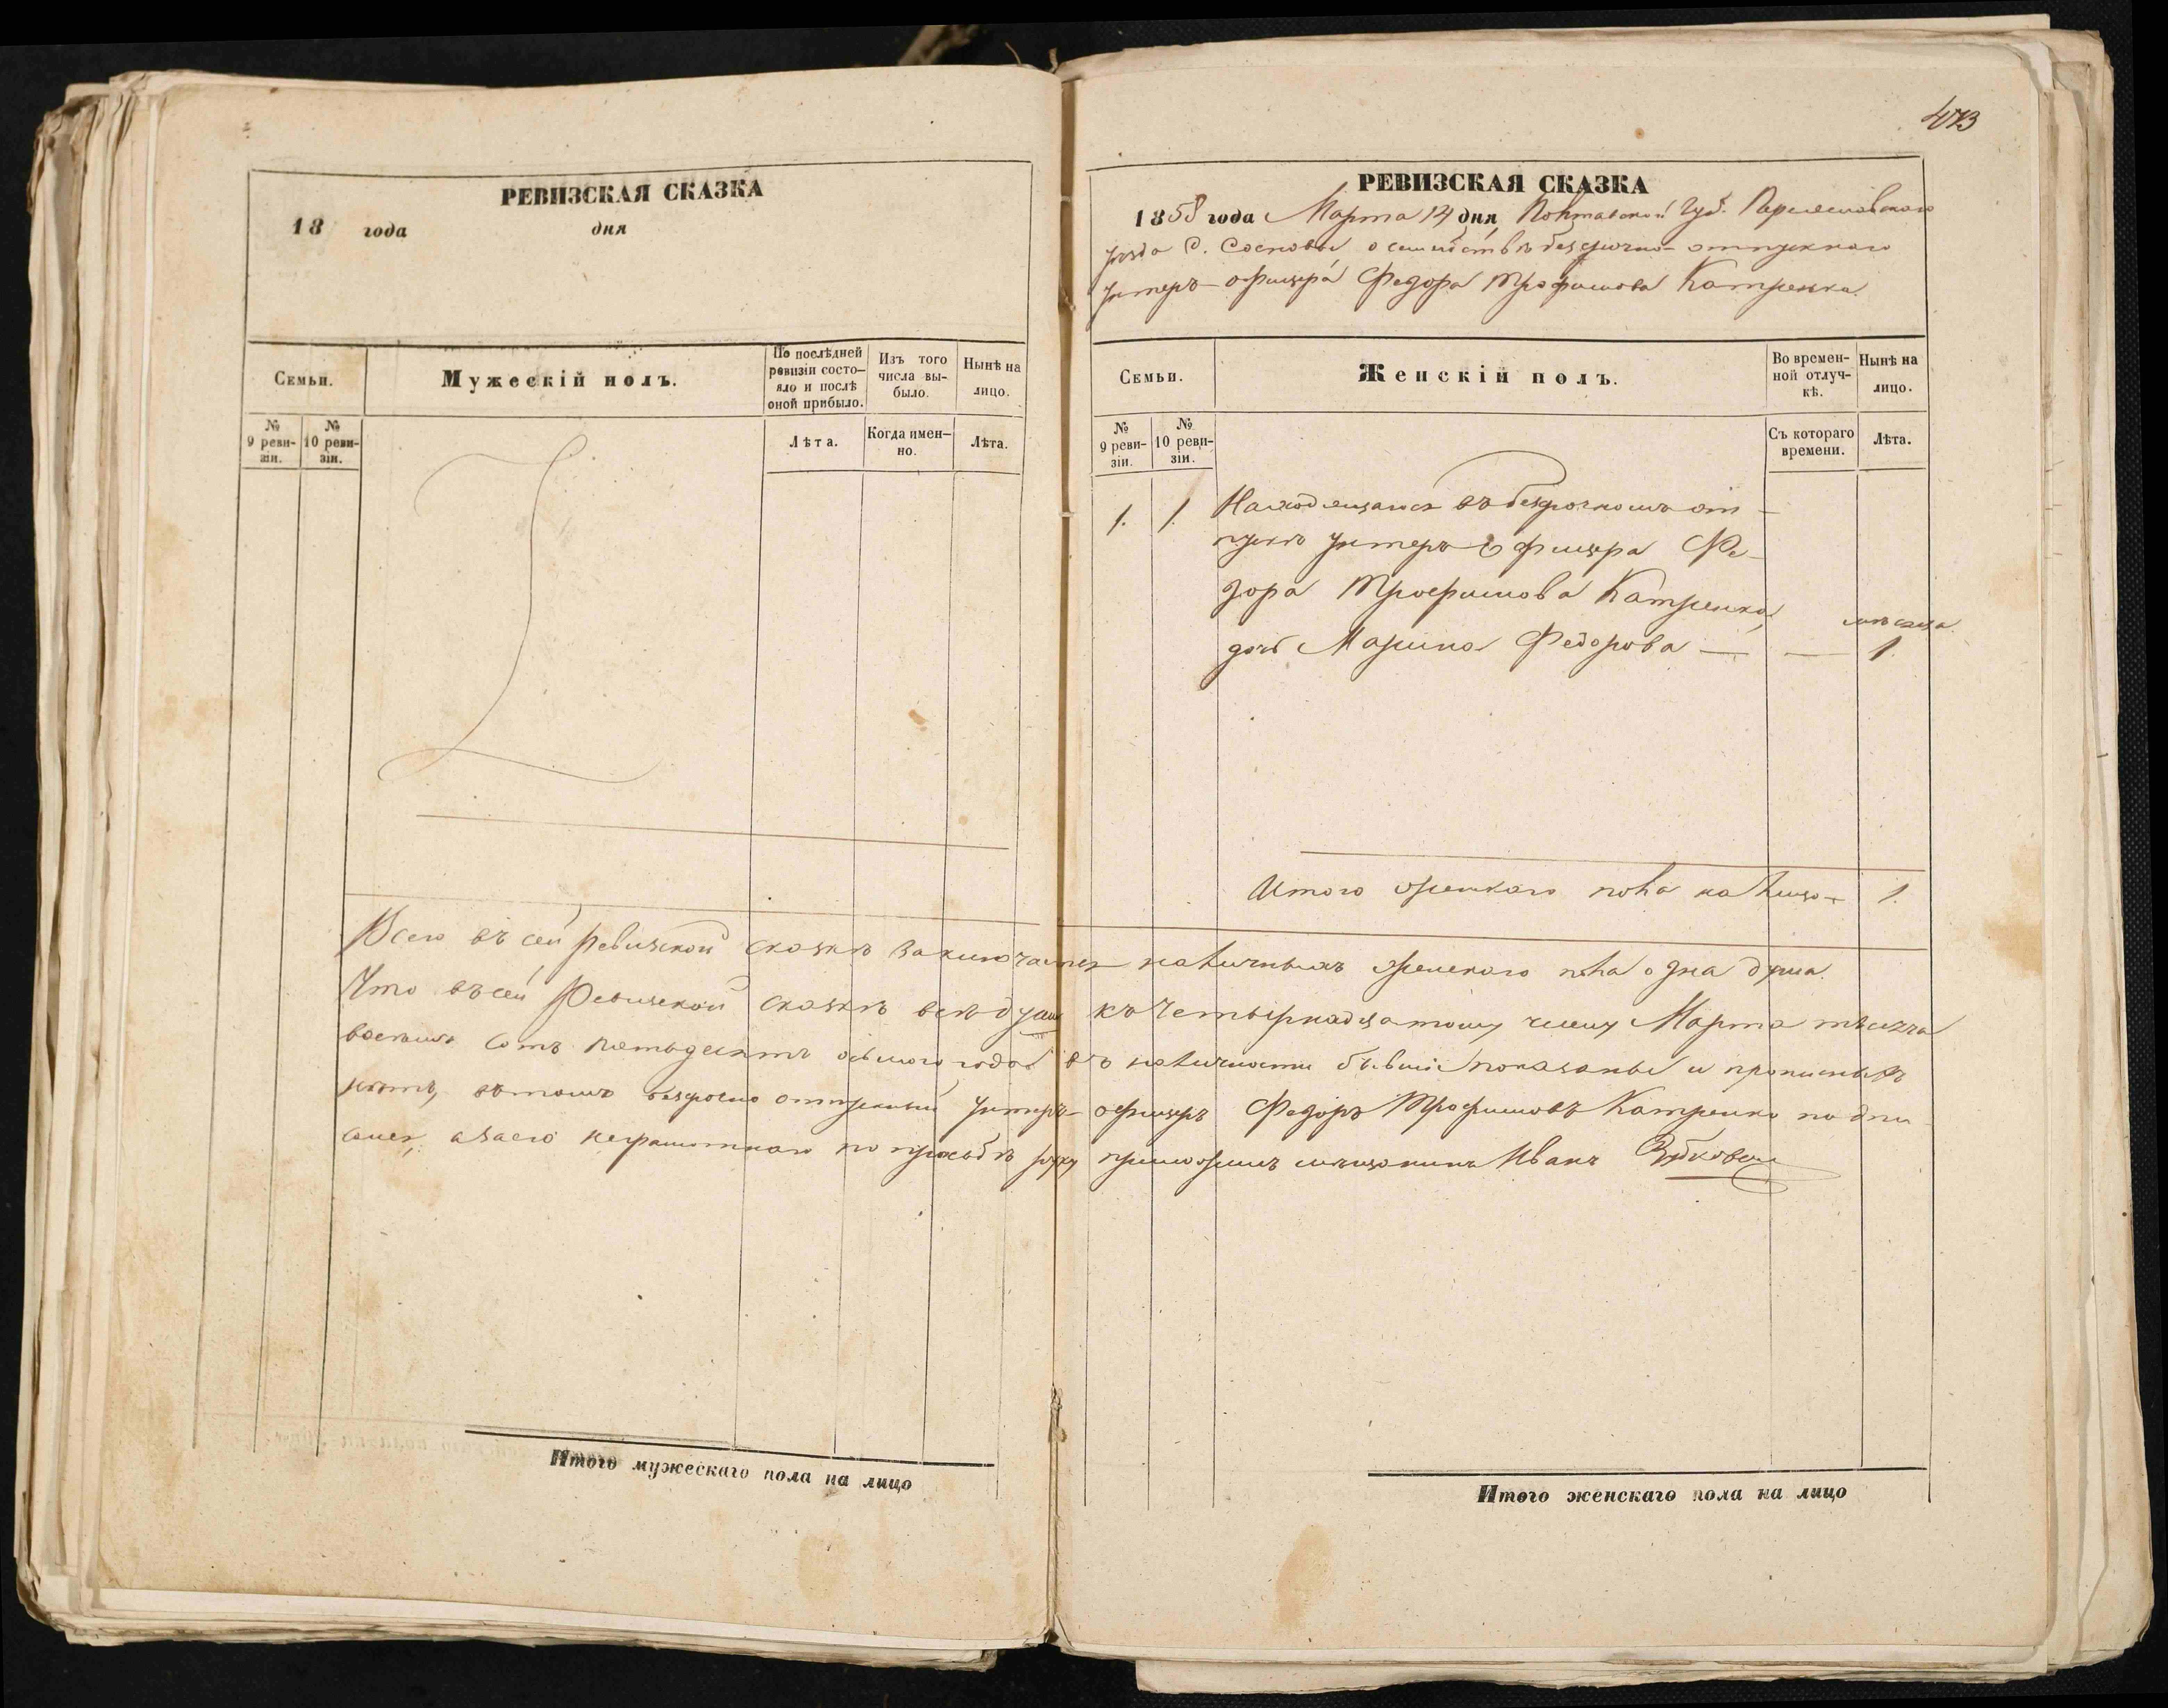 473
РЕВИЗСКАЯ СКАЗКА
18 года дня
Семьи.
Мужескій полъ.
По послѣдней ревизіи состояло и послѣ оной прибыло.
Изъ того числа выбыло.
Нынѣ на лицо.
№ 9 ревизіи.
№ 10 ревизіи.
Лѣта.
Когда именно.
Лѣта.
РЕВИЗСКАЯ СКАЗКА
1858 года Марта 14 дня, Полтавской Губ. Переяславскаго
уезда С. Сосновы о семействѣ безсрочно-отпускнаго
Унтеръ-офицера Федора Трофимова Катренка.
Семьи.
Женскій полъ.
Во временной отлучкѣ.
Нынѣ на лицо.
№ 9 ревизіи.
№ 10 ревизіи.
Съ котораго времени.
Лѣта.
1. 1. Находящагося въ безсрочномъ от-
пускѣ Унтеръ Офицера Фе-
дора Трофимова Катренка,
мѣсяца
дочь Марина Федорова — — 1.
Итого женскаго пола на лицо — 1.
Всего въ сей ревизской сказкѣ заключается наличныхъ женскаго пола одна душа.
Что въ сей Ревизской сказкѣ всѣ души къ четырнадцатому числу Марта мѣсяца
восемь сотъ пятьдесятъ осьмого года въ наличности бывшіе показаны и прописныхъ
нѣтъ, въ томъ безсрочно отпускный Унтеръ-офицеръ Федоръ Трофимовъ Катренко подпи
сался, а за его неграмотнаго по прозьбѣ руку приложилъ мещанинъ Иванъ
Итого мужескаго пола на лицо
Итого женскаго пола на лицо